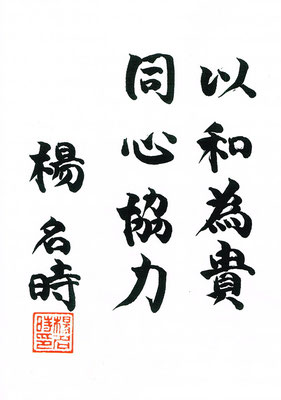 以和為貴
同心協力
楊名時
楊名時印